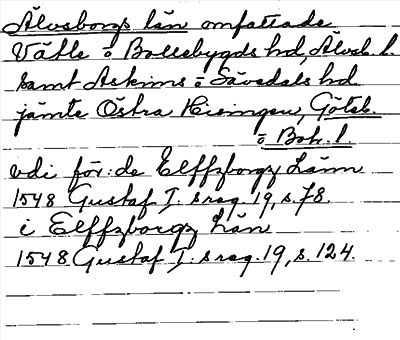 Älvsborgs län omfattade
Vätle o Bollebygds hd, Älvsb. l.
samt Askims o Sävedals hd
jämte Östra Hisingen, Göteb.
o Boh. l.
vdi för:de Elffzborgz Länn
1548 Gustaf I. s reg. 19, s. 78.
i Elffzborgz Län
1548 Gustaf I. s reg. 19, s. 124.